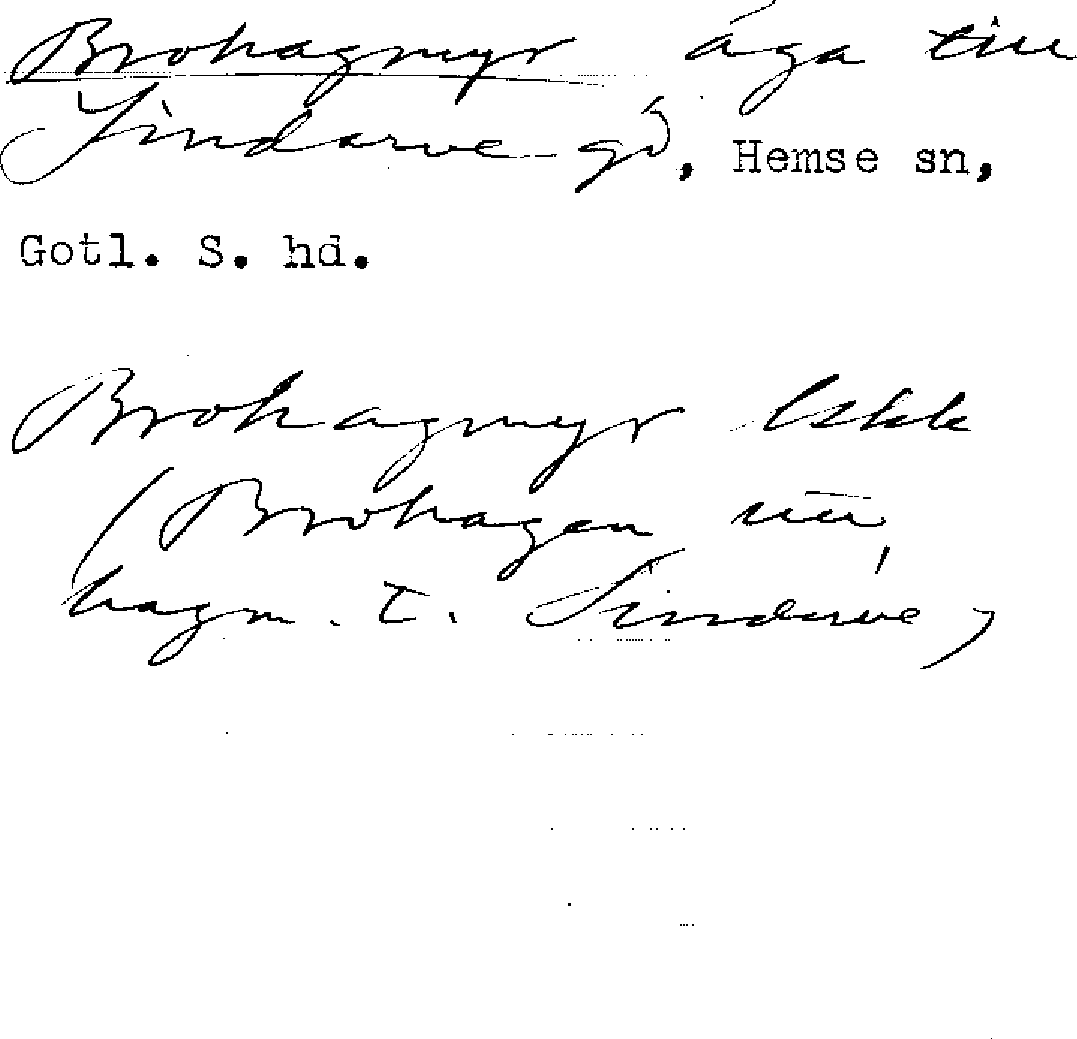 Brohagmyr äga till
Sindarve gd, Hemse sn,
Gotl. S. hd.
Brohagmyr Uskk
(Brohagen
hagm. t. Sindarve)